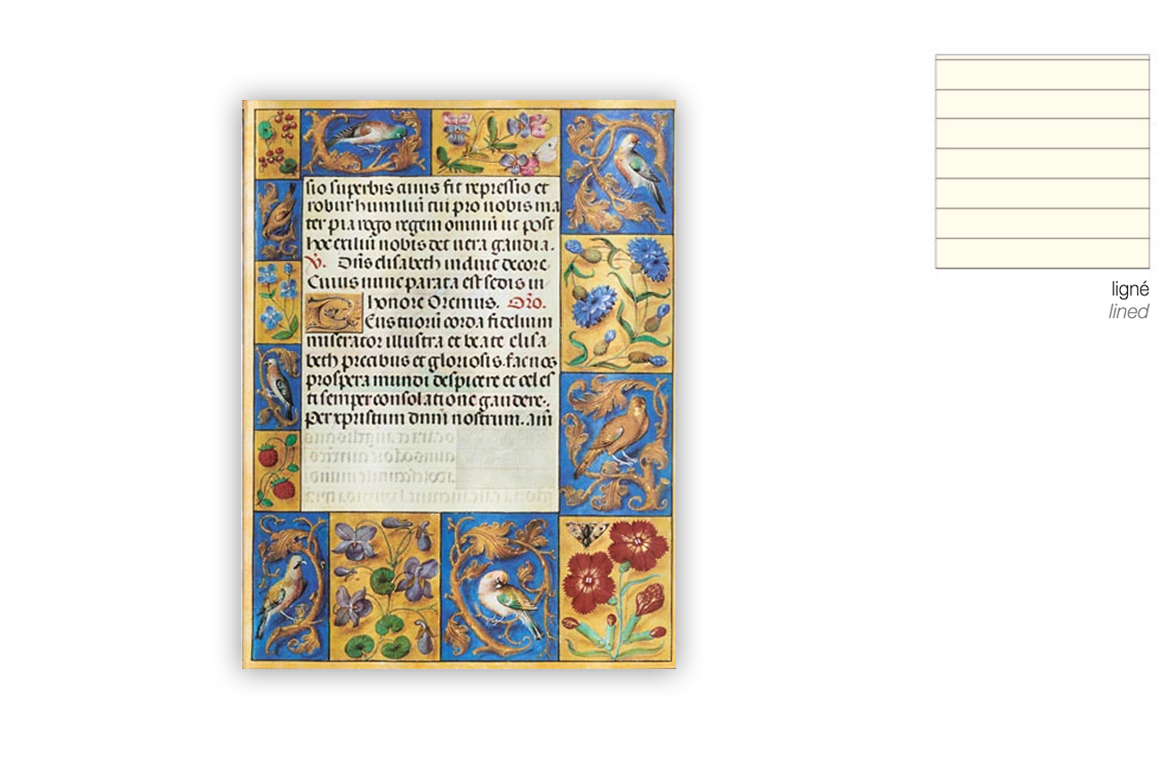 sio superbis auus fit repressio et
robur humiliū tui pro nobis ma
ter pia rogo regem omniū ut post
hoc exiliū nobis det uera gaudia.
V. Dn̄s elisabeth induit decore
Cuius nunc parata est sedis in
honore Oremus. Or̄o.
Deus tuorū corda fidelium
miserator illustra et beate elisa
beth precibus et gloriosis fac nos
prospera mundi despicere et celes
ti semper consolatione gaudere.
Per xpristum dn̄m nostrum. am̄
ligné
lined